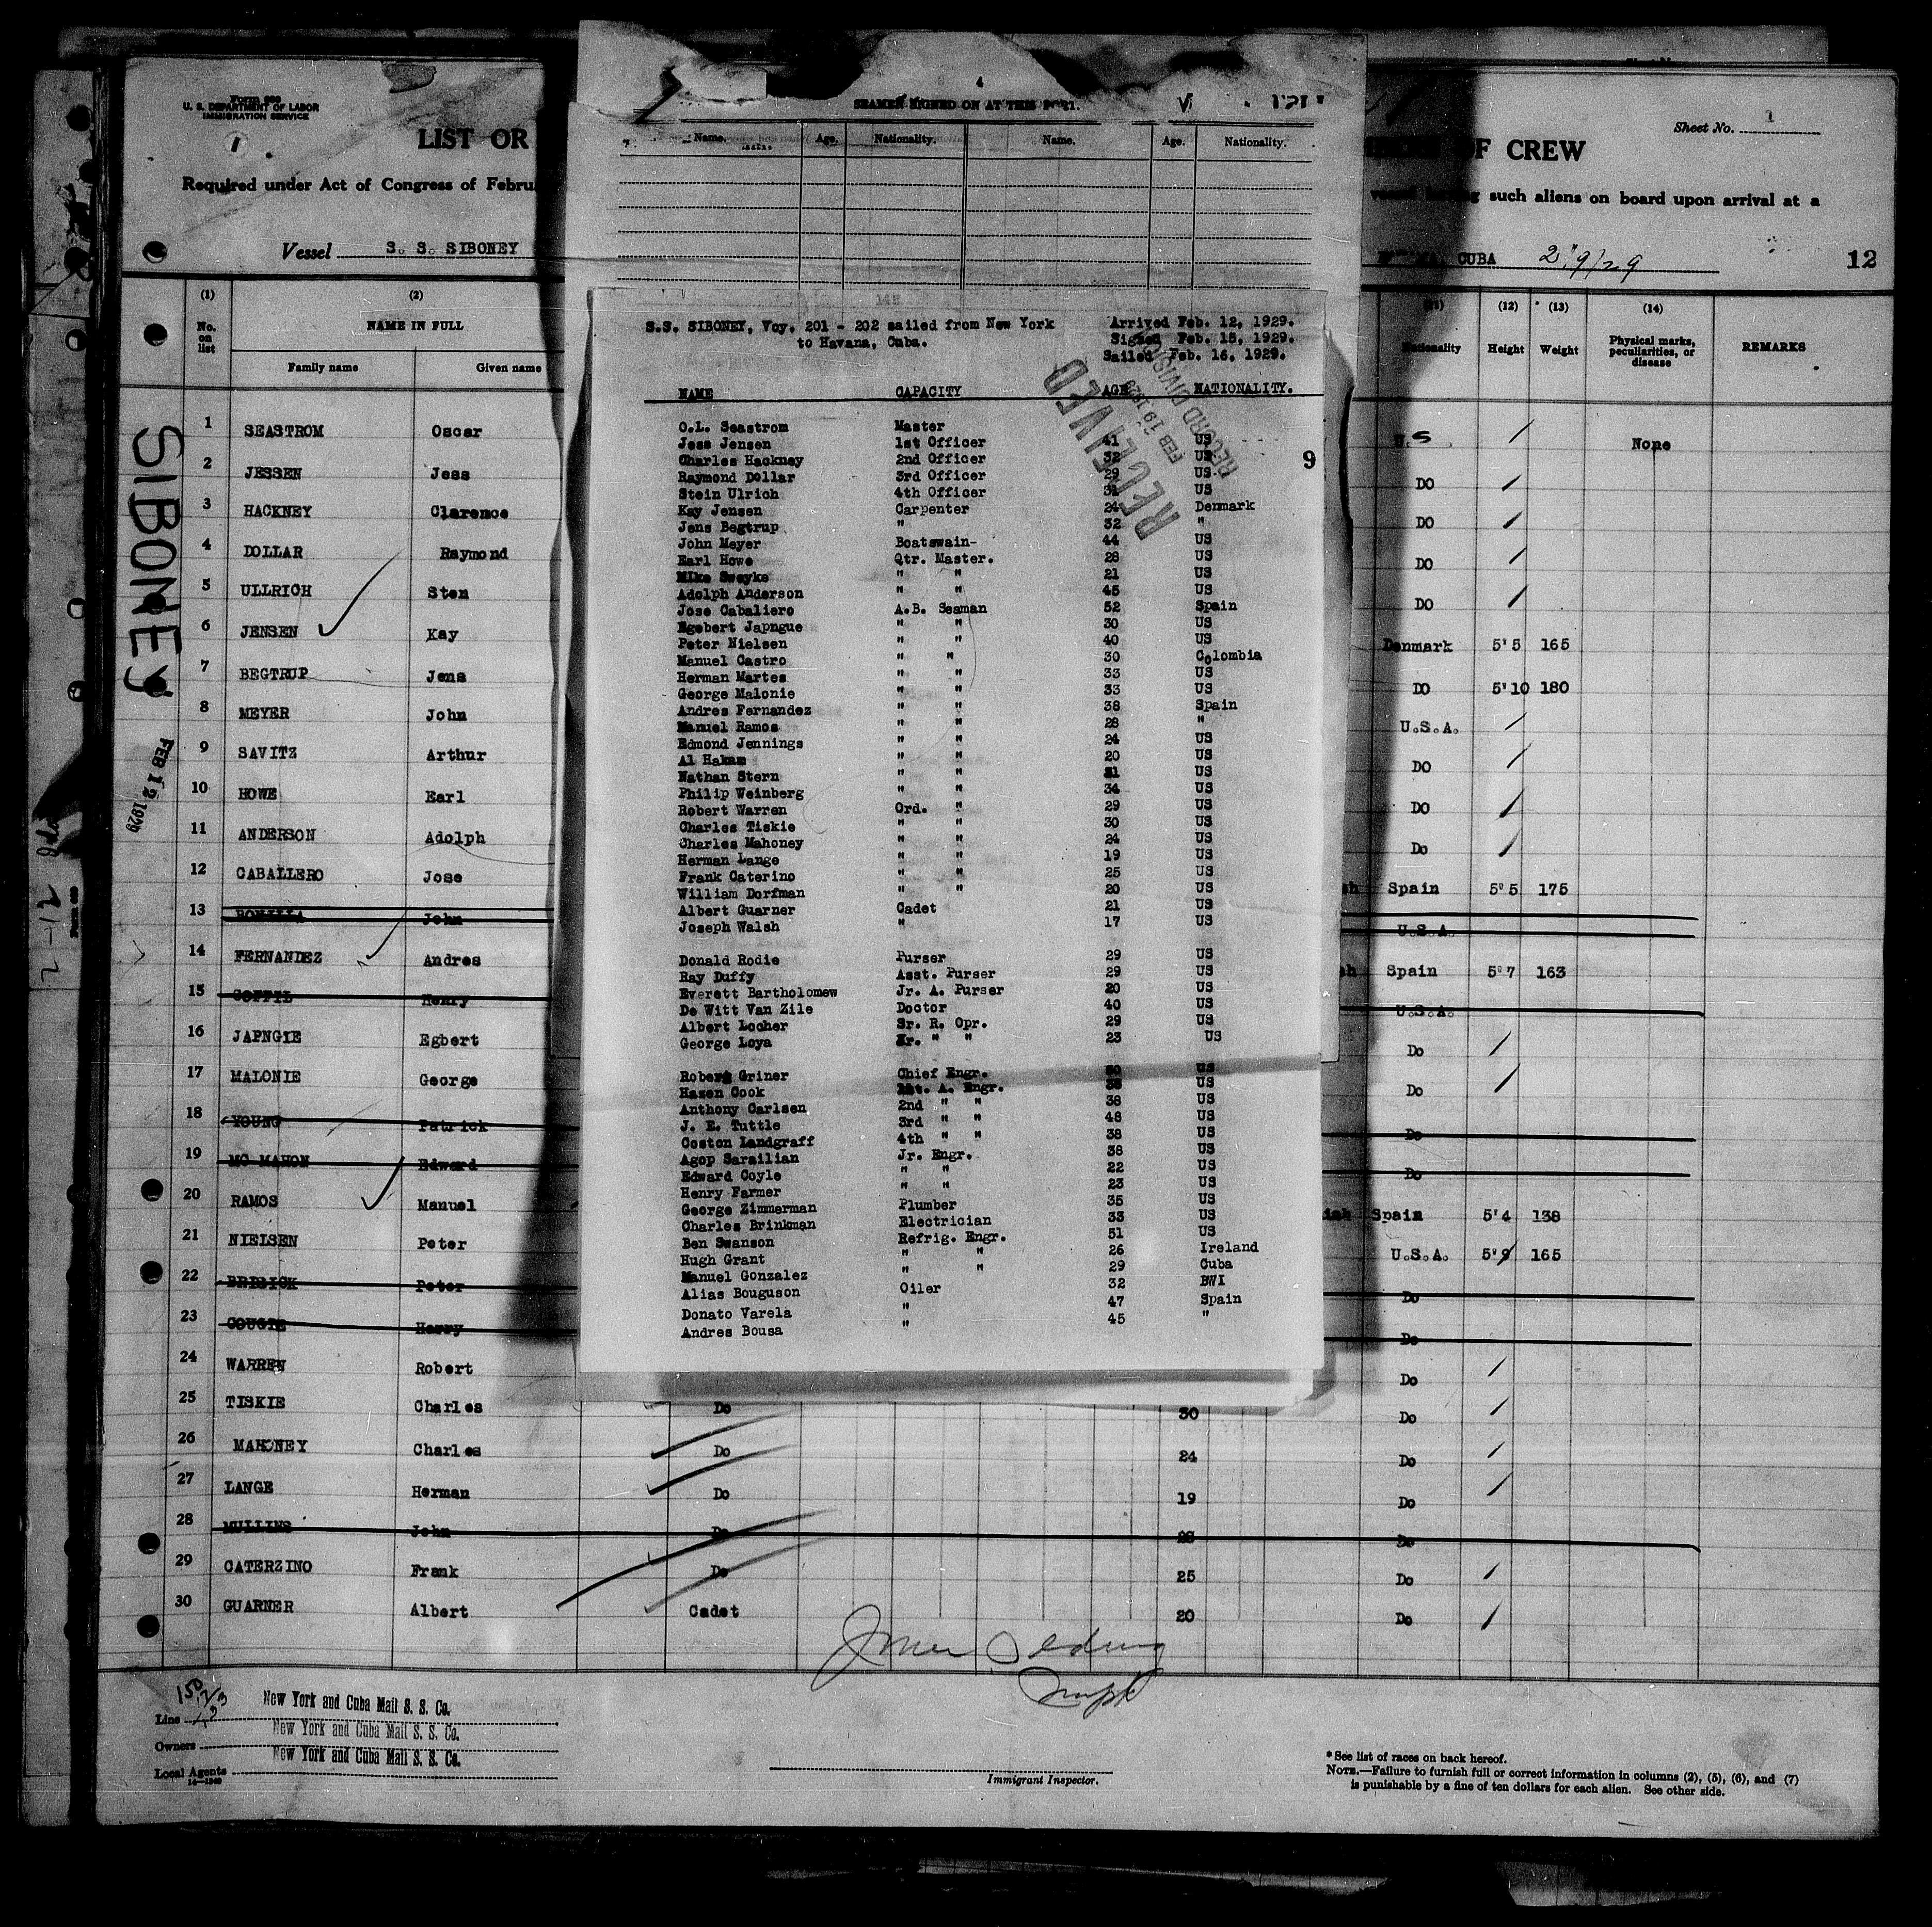 Form 689
U. S. DEPARTMENT OF LABOR
IMMIGRATION SERVICE
1
LIST OR
Required under Act of Congress of Febru
Vessel S. S. SIBONEY
(1) (2)
No. on list NAME IN FULL
Family name Given name
1 SEASTROM Oscar
2 JESSEN Jess
3 HACKNEY Clarence
4 DOLLAR Raymond
5 ULLRICH Sten
6 JENSEN Kay
7 BEGTRUP Jens
8 MEYER John
9 SAVITZ Arthur
10 HOWE Earl
11 ANDERSON Adolph
12 CABALLERO Jose
13 John
14 FERNANDEZ Andres
15 Henry
16 JAPNGIE Egbert
17 MALONIE George
18 YOUNG Patrick
19 MC MAHON Edward
20 RAMOS Manuel
21 NIELSEN Peter
22 Peter
23 Harry
24 WARREN Robert
25 TISKIE Charles Do 30 Do
26 MAHONEY Charles Do 24 Do
27 LANGE Herman Do 19 Do
28 MULLINS John Do Do
29 CATERZINO Frank Do 25 Do
30 GUARNER Albert Cadet 20 Do
SIBONEY
FEB 12 1929
4
SEAMEN SIGNED ON AT THIS PORT.
Name. Age. Nationality. Name. Age. Nationality.
S.S. SIBONEY, Voy. 201 - 202 sailed from New York
to Havana, Cuba.
Arrived Feb. 12, 1929.
Signed Feb. 15, 1929.
Sailed Feb. 16, 1929.
RECEIVED
FEB 19 1929
RECORD DIVISION
9
NAME CAPACITY AGE NATIONALITY.
O.L. Seastrom Master
Jess Jensen 1st Officer 41 US
Charles Hackney 2nd Officer 32 US
Raymond Dollar 3rd Officer 29 US
Stein Ulrich 4th Officer 31 US
Kay Jensen Carpenter 24 Denmark
Jens Begtrup " 32 "
John Meyer Boatswain- 44 US
Earl Howe Qtr. Master. 28 US
Mike Sweyke " " 21 US
Adolph Anderson " " 45 US
Jose Cabaliero A.B. Seaman 52 Spain
Egebert Japngue " " 30 US
Peter Nielsen " " 40 US
Manuel Castro " " 30 Colombia
Herman Martes " " 33 US
George Malonie " " 33 US
Andres Fernandez " " 38 Spain
Manuel Ramos " " 28 "
Edmond Jennings " " 24 US
Al Hakam " " 20 US
Nathan Stern " " 21 US
Philip Weinberg " " 34 US
Robert Warren Ord. " 29 US
Charles Tiskie " " 30 US
Charles Mahoney " " 24 US
Herman Lange " " 19 US
Frank Caterino " " 25 US
William Dorfman " " 20 US
Albert Guarner Cadet 21 US
Joseph Walsh " 17 US
Donald Rodie Purser 29 US
Ray Duffy Asst. Purser 29 US
Everett Bartholomew Jr. A. Purser 20 US
De Witt Van Zile Doctor 40 US
Albert Locher Sr. R. Opr. 29 US
George Loya Jr. " " 23 US
Robert Griner Chief Engr. 50 US
Hazen Cook 1st. A. Engr. 38 US
Anthony Carlsen 2nd " " 38 US
J. E. Tuttle 3rd " " 48 US
Coston Landgraff 4th " " 38 US
Agop Sarailian Jr. Engr. 38 US
Edward Coyle " " 22 US
Henry Farmer " " 23 US
George Zimmerman Plumber 35 US
Charles Brinkman Electrician 33 US
Ben Swanson Refrig. Engr. 51 US
Hugh Grant " " 26 Ireland
Manuel Gonzalez " " 29 Cuba
Alias Bouguson Oiler 32 BWI
Donato Varela " 47 Spain
Andres Bousa " 45 "
Sheet No. 1
OF CREW
such aliens on board upon arrival at a
CUBA 2/9/29 12
(11) (12) (13) (14)
Nationality Height Weight Physical marks, peculiarities, or disease REMARKS
U.S None
DO
DO
DO
DO
Denmark 5'5 165
DO 5'10 180
U.S.A.
DO
DO
Do
Spain 5'5 175
U.S.A.
Spain 5'7 163
U.S.A.
Do
Do
Do
Do
Spain 5'4 138
U.S.A. 5'9 165
Do
Do
Do
Line New York and Cuba Mail S. S. Co.
Owners New York and Cuba Mail S. S. Co.
Local Agents New York and Cuba Mail S. S. Co.
14—1240
Immigrant Inspector.
*See list of races on back hereof.
NOTE.—Failure to furnish full or correct information in columns (2), (5), (6), and (7)
is punishable by a fine of ten dollars for each alien. See other side.